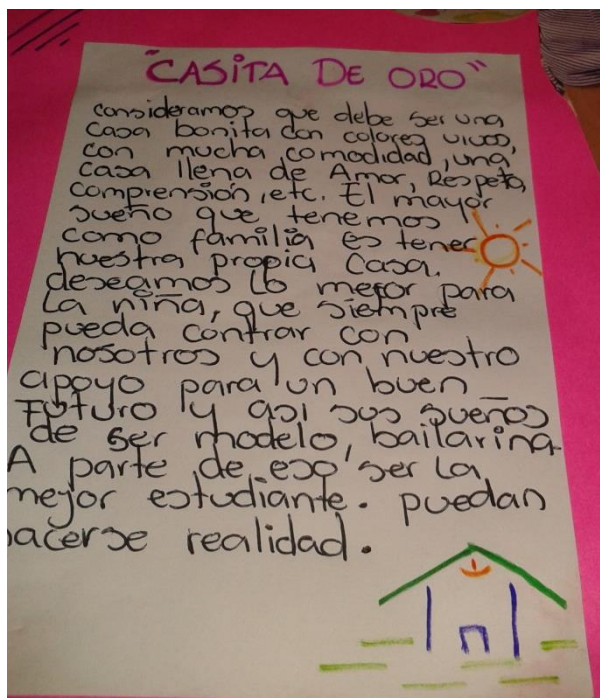 "CASITA DE ORO"
consideramos que debe ser una
casa bonita con colores vivos,
con mucha comodidad, una
casa llena de Amor, Respeto,
comprensión, etc. El mayor
sueño que tenemos
como familia es tener
nuestra propia Casa.
deseamos lo mejor para
La niña, que siempre
pueda contrar con
nosotros y con nuestro
apoyo para un buen
FUTURO y asi sus sueños
de ser modelo, bailarina.
A parte de eso, ser La
mejor estudiante. puedan
hacerse realidad.